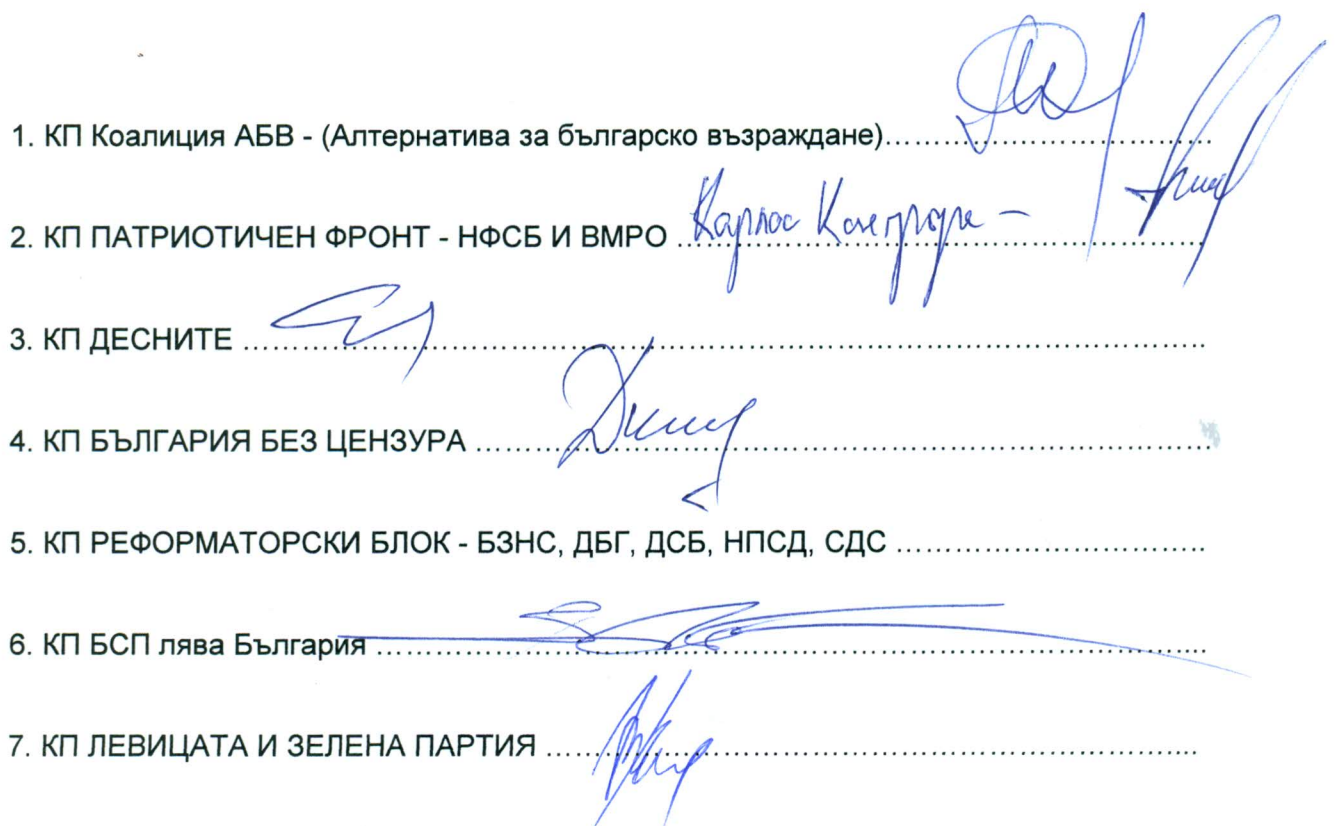 1. КП Коалиция АБВ - (Алтернатива за българско възраждане)
2. КП ПАТРИОТИЧЕН ФРОНТ - НФСБ И ВМРО Карлос Контрера -
3. КП ДЕСНИТЕ
4. КП БЪЛГАРИЯ БЕЗ ЦЕНЗУРА
5. КП РЕФОРМАТОРСКИ БЛОК - БЗНС, ДБГ, ДСБ, НПСД, СДС
6. КП БСП лява България
7. КП ЛЕВИЦАТА И ЗЕЛЕНА ПАРТИЯ